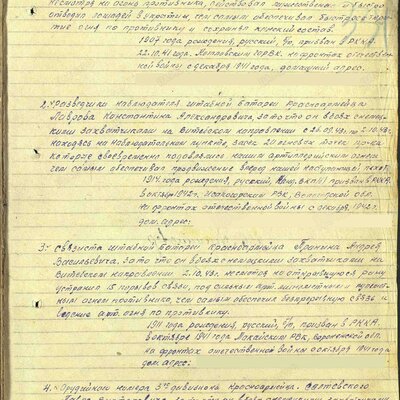 несмотря на огонь противника, действовал мужественно и быстро
отводил лошадей в укрытие, чем самым обеспечивал быстрое
огня по противнику и сохранял конский состав.
1907 года рождения, русский, б/п, призван в РККА
22.10.41 года, РВК, на фронтах отечествен-
ной войны с декабря 1941 года, домашний адрес:
2. Разведчика наблюдателя штабной батареи Красноармейца
Лаврова Константина Александровича, за то что он в боях с немец-
кими захватчиками на Витебском направлении с 26.09.43г. по 2.10.43г.
находясь на наблюдательном пункте, засек 20 огневых точек про-ка
которые своевременно подавились нашим артиллерийским огнем,
чем самым обеспечивал продвижение вперед нашей наступающей пехот
1914 года рождения, русский, призван в РККА
в 1942г. РВК, обл.
на фронтах отечественной войны с 1942г.
дом. адрес:
3. Связиста штабной батареи Красноармейца Пронина Андрея
Васильевича, за то что он в боях с немецкими захватчиками на
Витебском направлении 2.10.43г. несмотря на открывшуюся рану
устранил 15 порывов связи, под сильным арт. минометным и пулемет-
ным огнем противника, чем самым обеспечил бесперебойную связь и
ведение арт. огня по противнику.
1911 года рождения, русский, б/п, призван в РККА
в октябре 1941 года РВК, Воронежской обл.
на фронтах отечественной войны с октября 1941 года
дом. адрес:
4. Орудийного номера 3го дивизиона Красноармейца
за то что он в боях с немецкими захватчиками